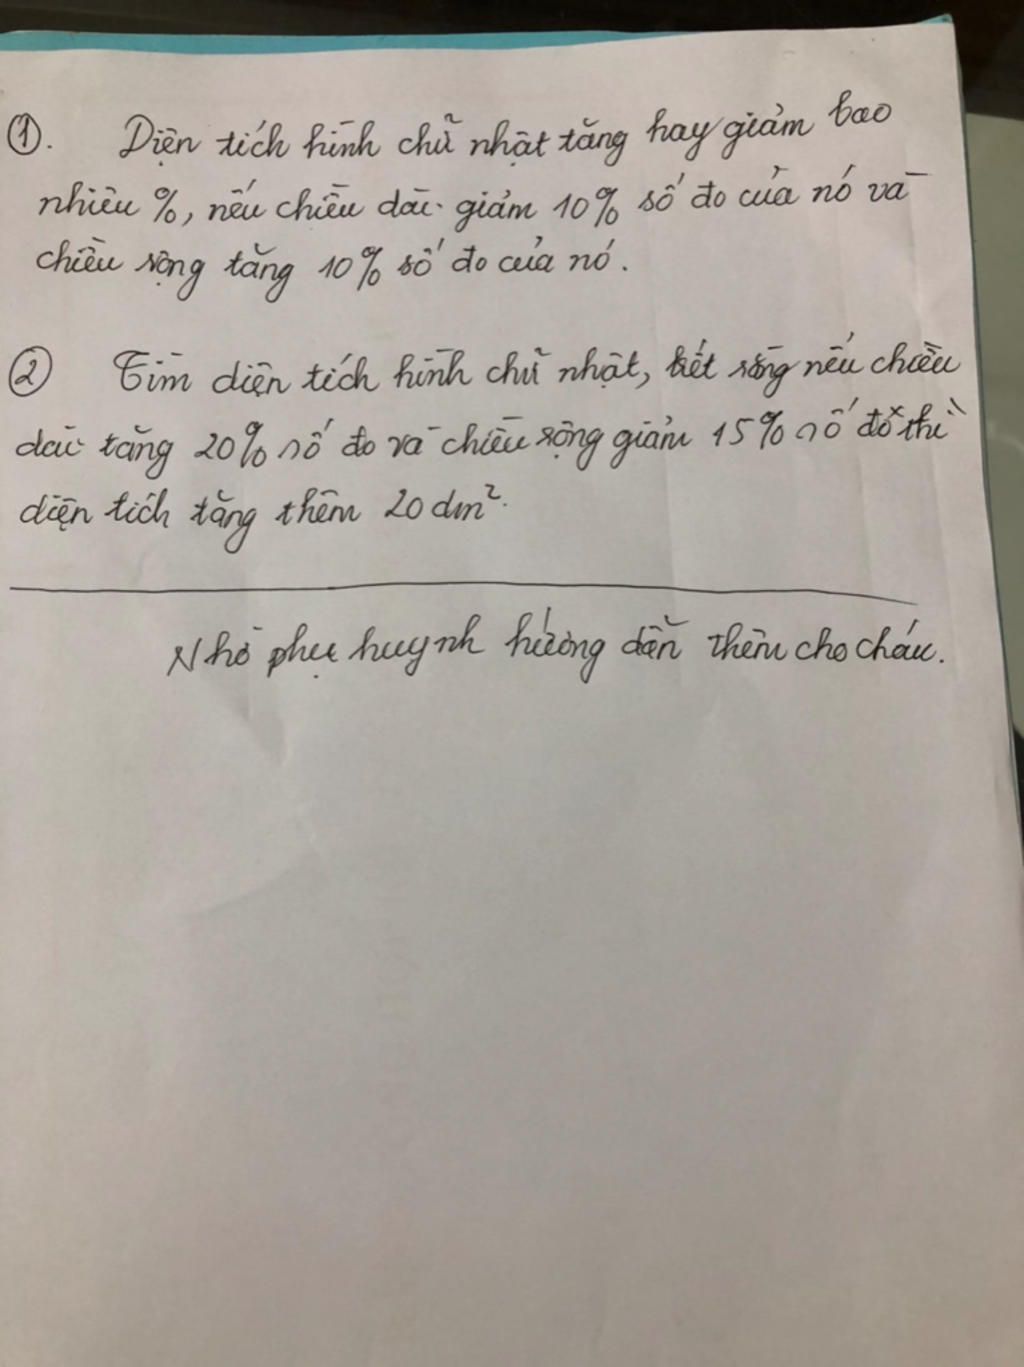 ①. Diện tích hình chữ nhật tăng hay giảm bao
nhiêu %, nếu chiều dài giảm 10% số đo của nó và
chiều rộng tăng 10% số đo của nó.
② Tìm diện tích hình chữ nhật, biết rằng nếu chiều
dài tăng 20% số đo và chiều rộng giảm 15% số đo thì
diện tích tăng thêm 20 dm².
Nhờ phụ huynh hướng dẫn thêm cho cháu.